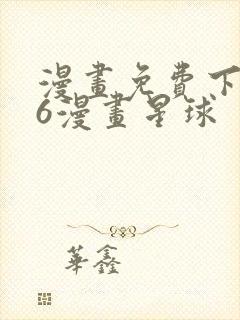 漫畫免費下
6漫畫星球
華鑫